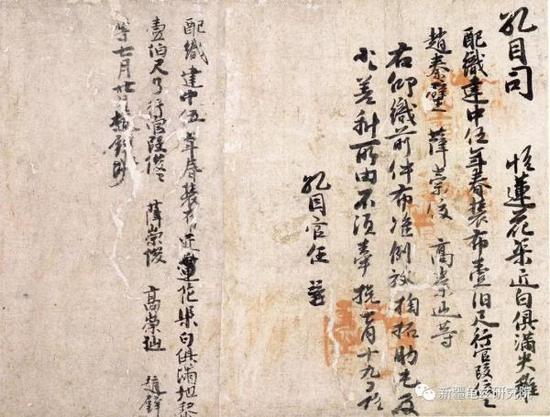 孔目司　帖蓮花渠匠白俱滿尖雞
配織建中伍年春裝布壹伯尺行官段俊俊
趙秦璧　薛崇俊　高崇迦等
右仰織前件布准例放掏拓助屯及
小小差科所由不須牽挽七月十九日帖
孔目官任
配織建中伍年春裝布匠蓮花渠白俱滿地黎
壹伯尺了行官段俊俊　薛崇俊　高崇迦　趙
等七月廿日趙
新疆龟兹研究院